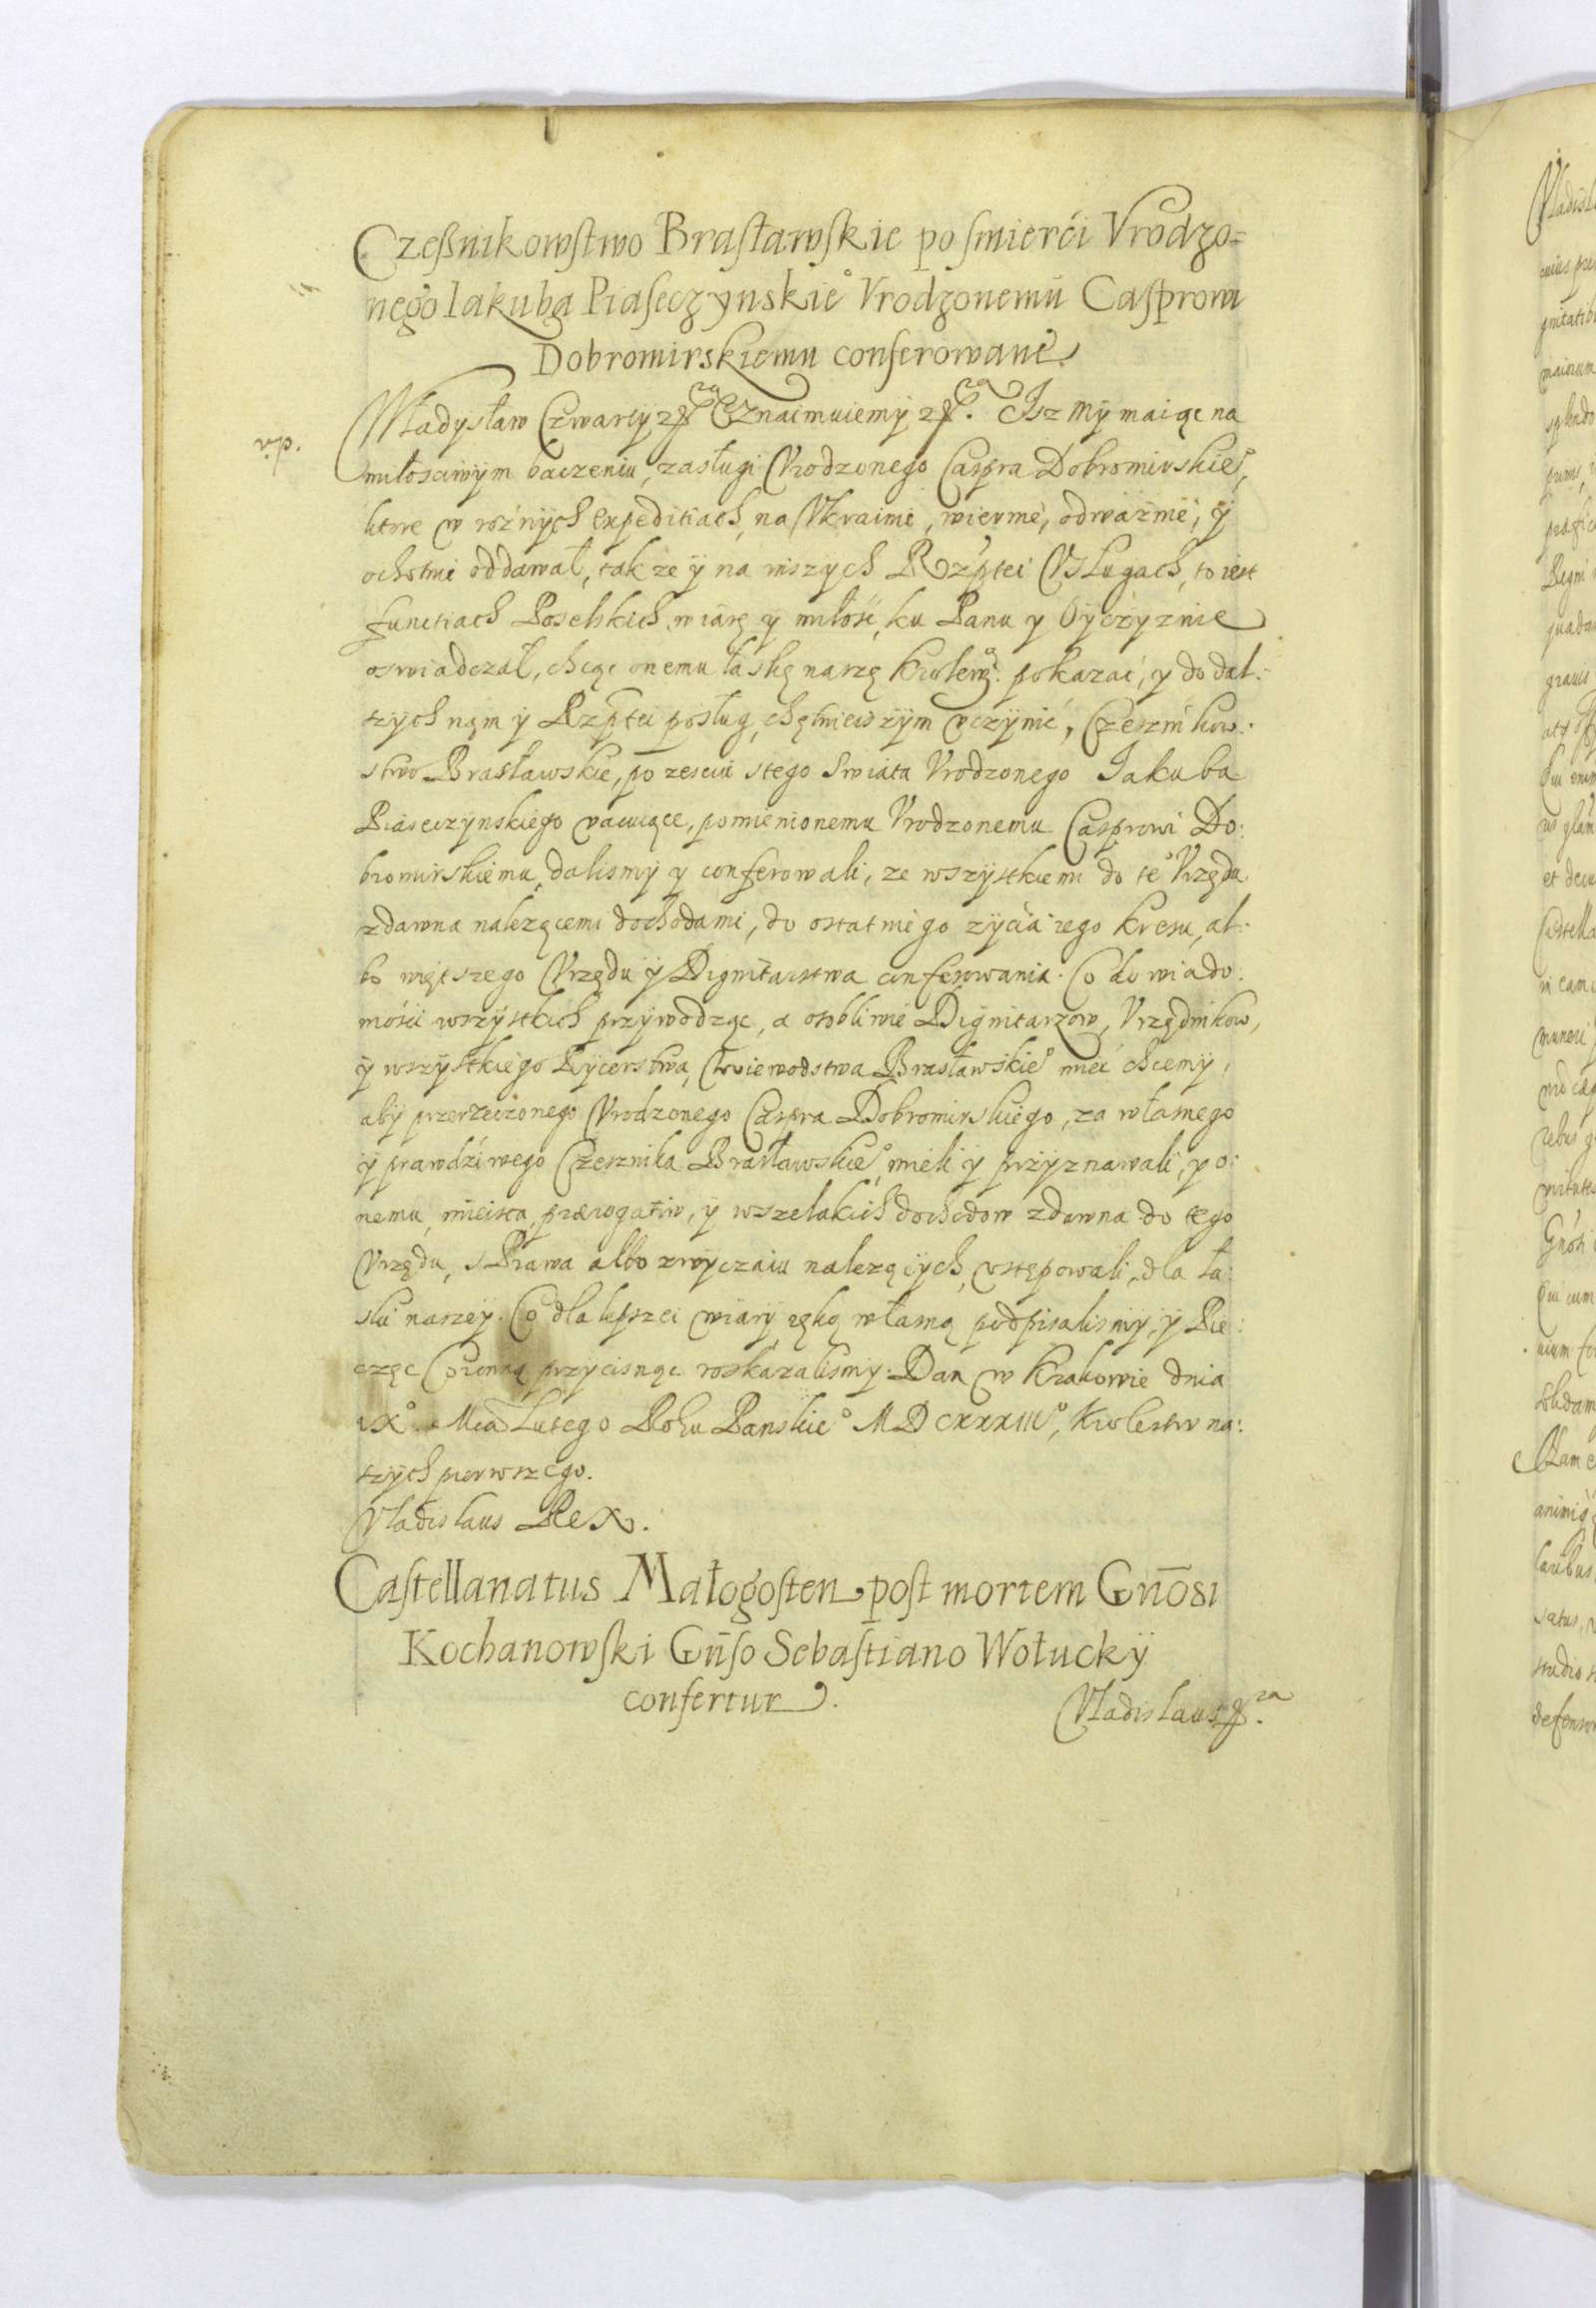 Czeßnikowstwo Brasławskie po smierći Vrodzo=
nego Iakuba Piaseczynskie° Vrodzonemu Casprowi
Dobromirskiemu conferowane.
Władysław Czwarty Oznaimuiemÿ Isz mÿ maiąc na
miłosciwÿm baczeniu, zasługi Vrodzonego Caspra Dobromirskie°,
ktore w roznÿch Expeditiach, na Vkrainie, wiernie, odwaznie, ÿ
ochotnie oddawał, takze ÿ na inszÿch Rzptei Vsługach, to iest
functiach Poselskich, wiarę ÿ miłość, ku Panu y Oÿczÿznie
oswiadczał, chcąc onemu łaskę naszę pokazać, y do dal:
szÿch nąm ÿ Rzptei posług, chętnieiszÿm vczÿnić, Czesznikow:
stwo Brasławskie, po zesciu stego Swiata Vrodzonego Iakuba
Piaseczynskiego vacuiące, pomienionemu Vrodzonemu Casprowi Do:
bromirskiemu, dalismÿ y conferowali, ze wszÿstkiemi do te° Vrzędu
zdawna nalezącemi dochodami, do ostatniego zÿcia iego kresu, al:
bo więtszego Vrzędu ÿ Dignitarstwa conferowania. Co do wiado:
mości wszÿstkich przÿwodząc, a osobliwie Dignitarzow, Vrzędnikow,
ÿ wszÿstkiego Rÿcerstwa, Woiewodstwa Brasławskie° mieć chcemÿ,
abÿ przerzeczonego Vrodzonego Caspra Dobromirskiego, za własnego
ÿ prawdźiwego Czesznika Brasławskie°, mieli ÿ przÿznawali, ÿ o:
nemu, mieisca, prærogatiw, ÿ wszelakich dochodow zdawna do tego
Vrzędu, s Prawa albo zwÿczaiu nalezącÿch, vstępowali, dla ła:
ski naszeÿ. Co dla lepszei wiarÿ, ręką własną podpisalismÿ, ÿ Pie:
częc Coronną przÿcisnąc roskazalismÿ. Dan w Krakowie dnia
Lutego Roku Panskie° MDCXXXIII°, Krolestw na:
szÿch pierwszego.
Vladislaus Rex.
Castellanatus Małogosten post mortem Gn̄osi
Kochanowski Gn̄so Sebastiano Wołuckÿ
confertur.
Vladislaus